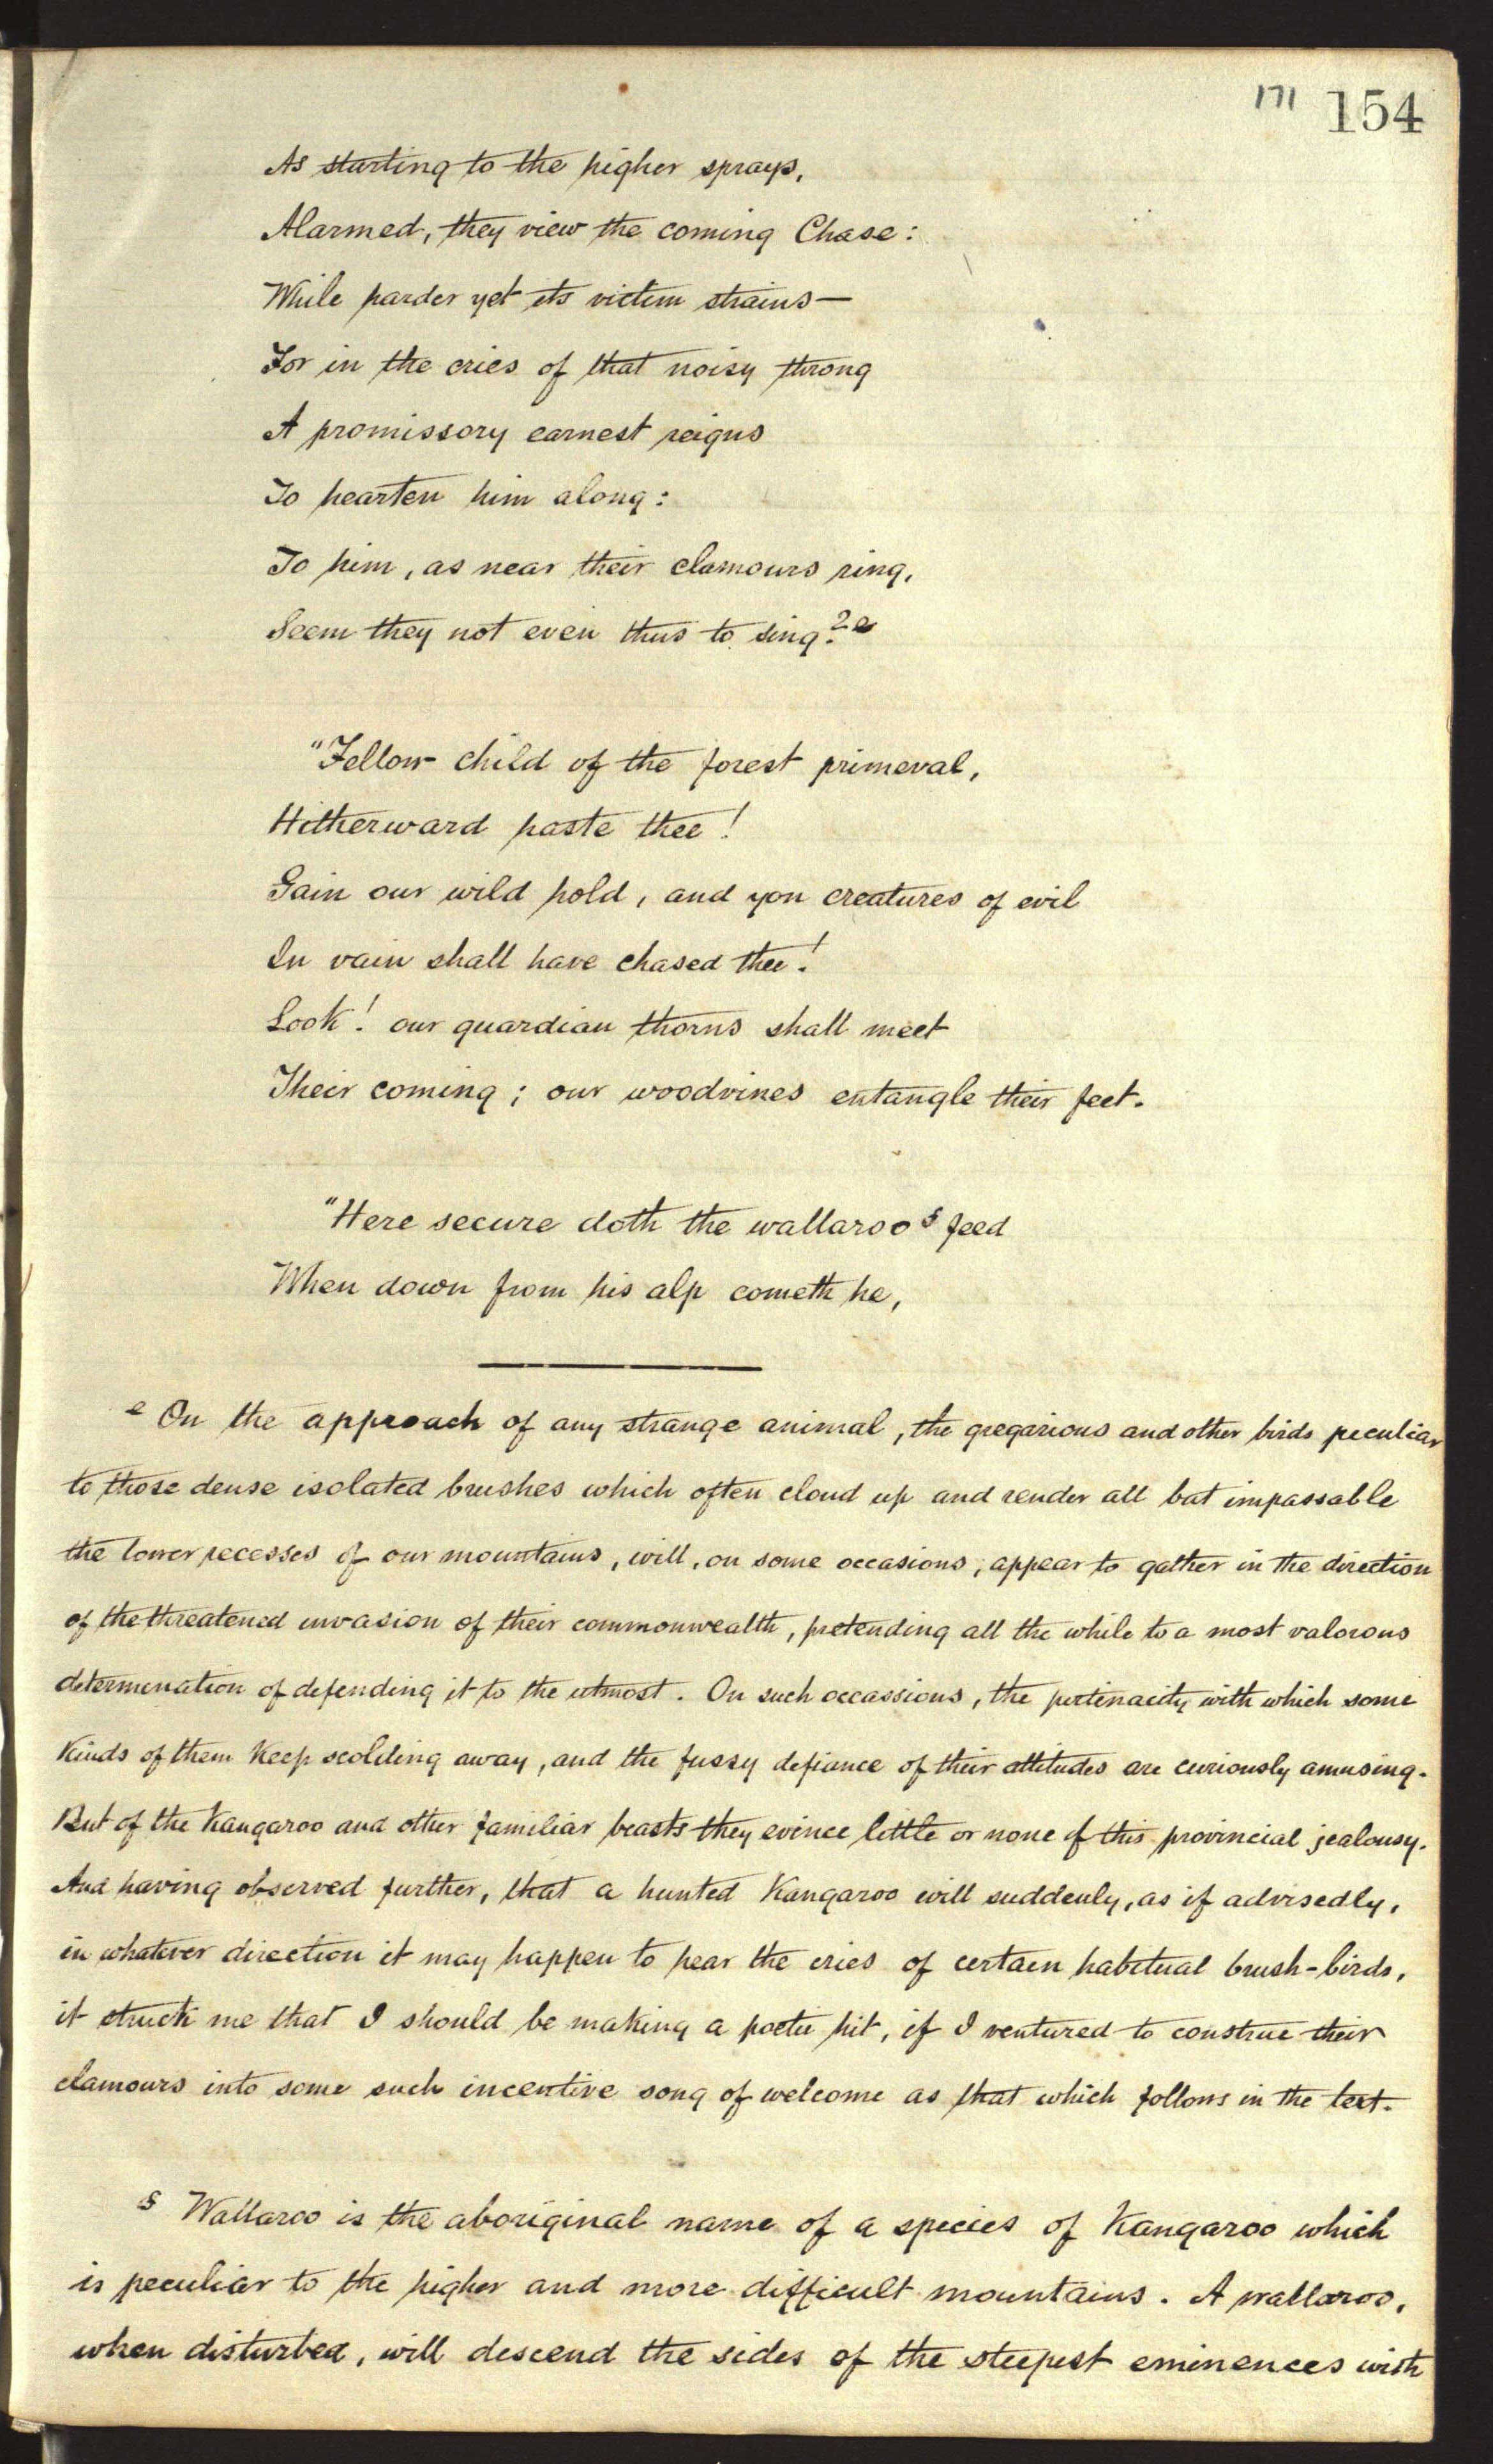 171 154
As starting to the higher sprays,
Alarmed, they view the coming Chase:
While harder yet its victim strains—
For in the cries of that noisy throng
A promissory earnest reigns
To hearten him along:
To him, as near their clamours ring,
Seem they not even thus to sing? e
"Fellow child of the forest primeval,
Hitherward haste thee!
Gain our wild hold, and yon creatures of evil
In vain shall have chased thee!
Look! our guardian thorns shall meet
Their coming; our woodvines entangle their feet.
"Here secure doth the wallaroo § feed
When down from his alp cometh he,
e On the approach of any strange animal, the gregarious and other birds peculiar
to those dense isolated brushes which often cloud up and render all bat impassable
the lower recesses of our mountains, will, on some occasions, appear to gather in the direction
of the threatened invasion of their commonwealth, pretending all the while to a most valorous
determination of defending it to the utmost. On such occassions, the pertinacity with which some
kinds of them keep scolding away, and the fussy defiance of their attitudes are curiously amusing.
But of the Kangaroo and other familiar beasts they evince little or none of this provincial jealousy.
And having observed further, that a hunted Kangaroo will suddenly, as if advisedly,
in whatever direction it may happen to hear the cries of certain habitual brush-birds,
it struck me that I should be making a poetic hit, if I ventured to construe their
clamours into some such incentive song of welcome as that which follows in the text.
§ Wallaroo is the aboriginal name of a species of Kangaroo which
is peculiar to the higher and more difficult mountains. A wallaroo,
when disturbed, will descend the sides of the steepest eminences with